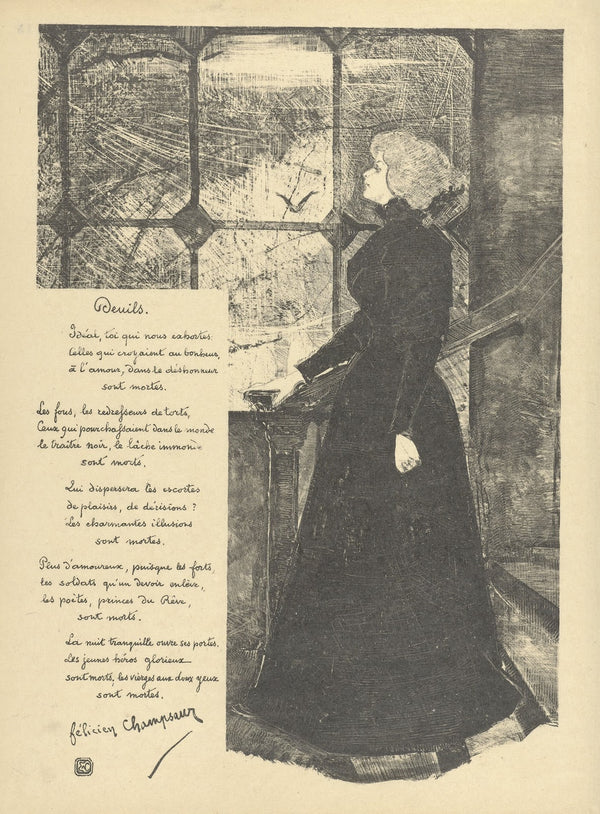 Deuils.
Idéal, toi qui nous exhortes.
Celles qui croyaient au bonheur,
à l'amour, dans le déshonneur
sont mortes.
Les fous, les redresseurs de torts,
Ceux qui pourchassaient dans le monde
le traître noir, le lâche immonde
sont morts.
Qui dispersera les escortes
de plaisirs, de dérisions ?
Les charmantes illusions
sont mortes.
Plus d'amoureux, puisque les forts,
les soldats qu'un devoir enlève,
les poètes, princes du Rêve,
sont morts.
La nuit tranquille ouvre ses portes.
Les jeunes héros glorieux
sont morts, les vierges aux doux yeux
sont mortes.
félicien Champsaur